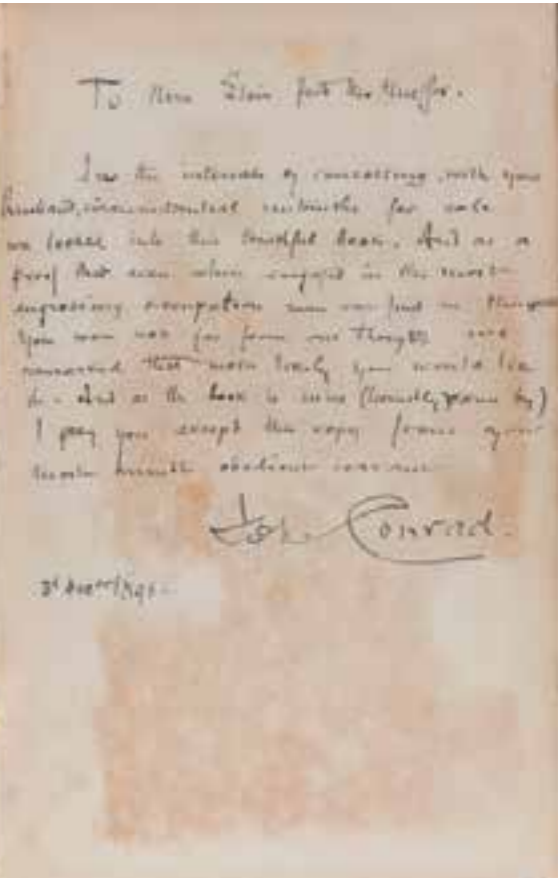 To Mrs Elsie Ford Mx Hueffer.
In the intervals of concocting, with your
husband, circumstantial for sale
we looked into this truthful book. And as a
proof that even when engaged in the most
engrossing occupation men can find
You were not far from our thoughts we
remarked that most likely you would like
it. And as the book is mine (honestly come by)
I pray you accept this copy from your
most humble obedient servant
Conrad.